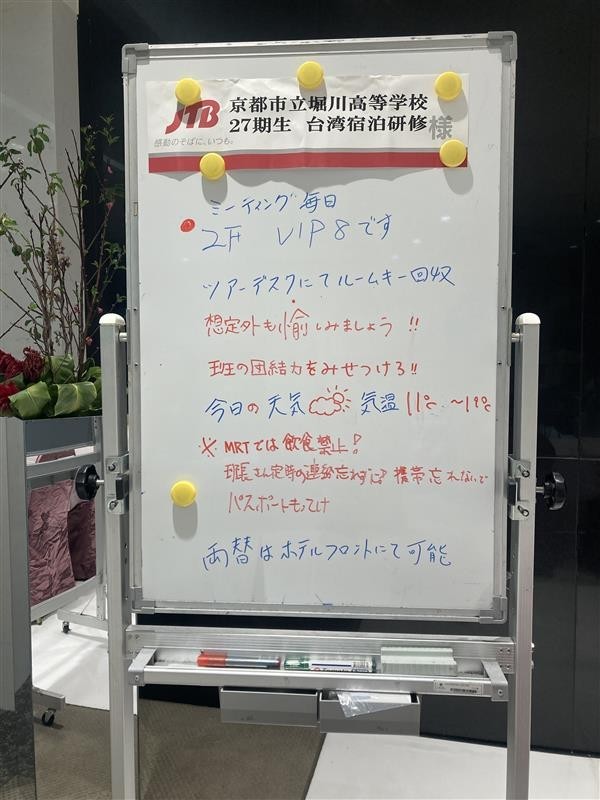 JTB
感動のそばに、いつも。
京都市立堀川高等学校
27期生 台湾宿泊研修 様
ミーティング 毎日
2F VIP 8 です
ツアーデスクにてルームキー回収
想定外も愉しみましょう!!
班の団結力をみせつけろ!!
今日の天気 気温 11℃ ~19℃
※ MRTでは飲食禁止!
班長さん定時の連絡忘れずに 携帯忘れないで
パスポートもってけ
両替はホテルフロントにて可能